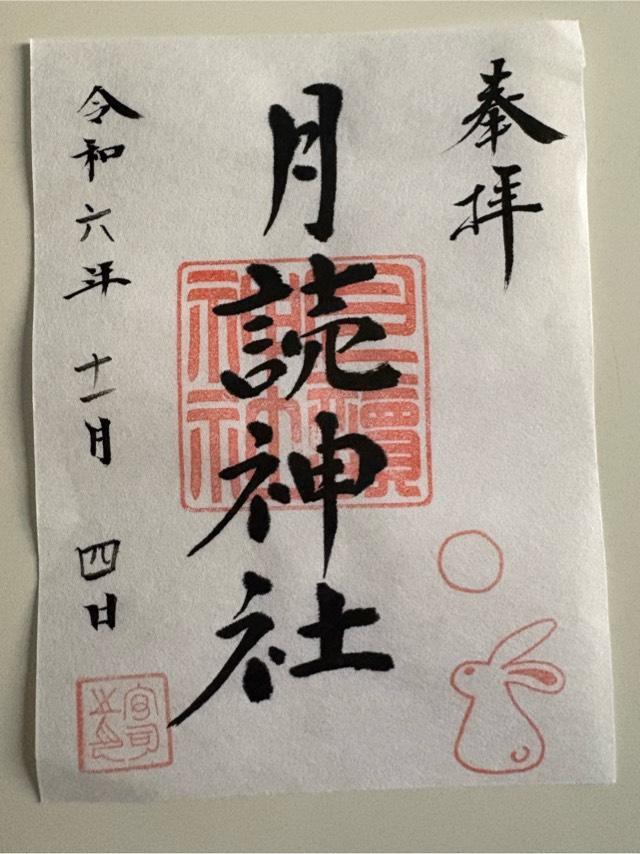 奉拝
月読神社
令和六年 十一月 四日
月讀神社
宮司之印